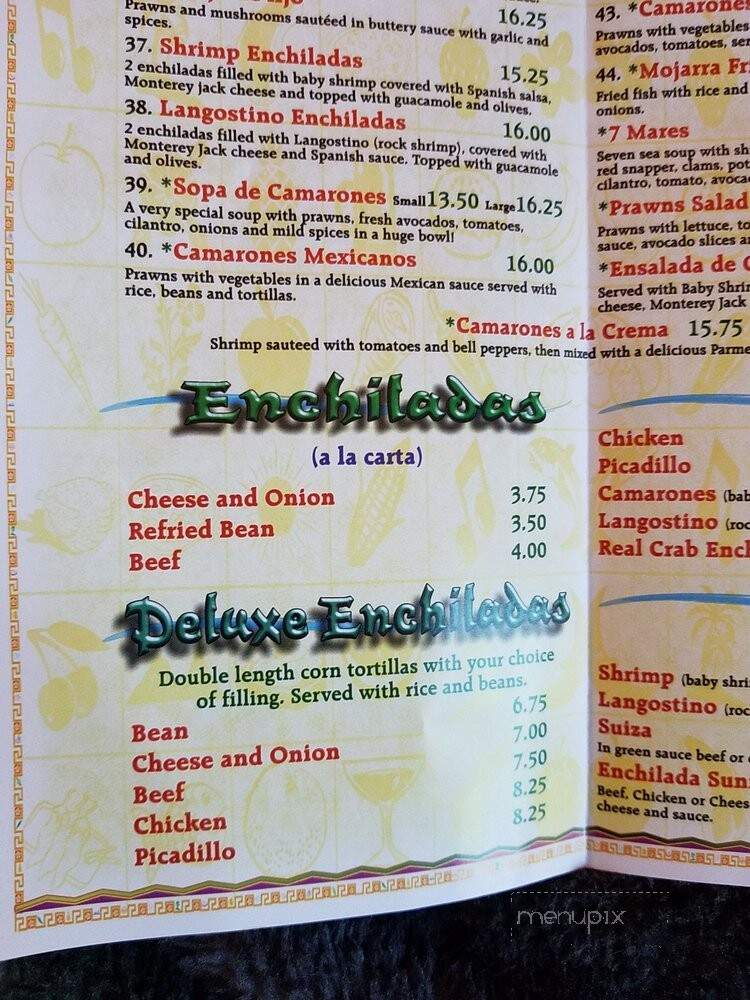 16.25
Prawns and mushrooms sautéed in buttery sauce with garlic and
spices.
37. Shrimp Enchiladas 15.25
2 enchiladas filled with baby shrimp covered with Spanish salsa,
Monterey jack cheese and topped with guacamole and olives.
38. Langostino Enchiladas 16.00
2 enchiladas filled with Langostino (rock shrimp), covered with
Monterey Jack cheese and Spanish sauce. Topped with guacamole
and olives.
39. *Sopa de Camarones Small 13.50 Large 16.25
A very special soup with prawns, fresh avocados, tomatoes,
cilantro, onions and mild spices in a huge bowl!
40. *Camarones Mexicanos 16.00
Prawns with vegetables in a delicious Mexican sauce served with
rice, beans and tortillas.
*Camarones a la Crema 15.75
Shrimp sauteed with tomatoes and bell peppers, then mixed with a delicious Parme
Enchiladas
(a la carta)
Cheese and Onion 3.75
Refried Bean 3.50
Beef 4.00
Deluxe Enchiladas
Double length corn tortillas with your choice
of filling. Served with rice and beans.
Bean 6.75
Cheese and Onion 7.00
Beef 7.50
Chicken 8.25
Picadillo 8.25
43. *Camarones
Prawns with vegetables
avocados, tomatoes, ser
44. *Mojarra Fri
Fried fish with rice and
onions.
*7 Mares
Seven sea soup with sh
red snapper, clams, pot
cilantro, tomato, avoca
*Prawns Salad
Prawns with lettuce, to
sauce, avocado slices a
*Ensalada de C
Served with Baby Shrim
cheese, Monterey Jack
Chicken
Picadillo
Camarones (bab
Langostino (roc
Real Crab Encl
Shrimp (baby shri
Langostino (roc
Suiza
In green sauce beef or
Enchilada Sun
Beef, Chicken or Chees
cheese and sauce.
menupix